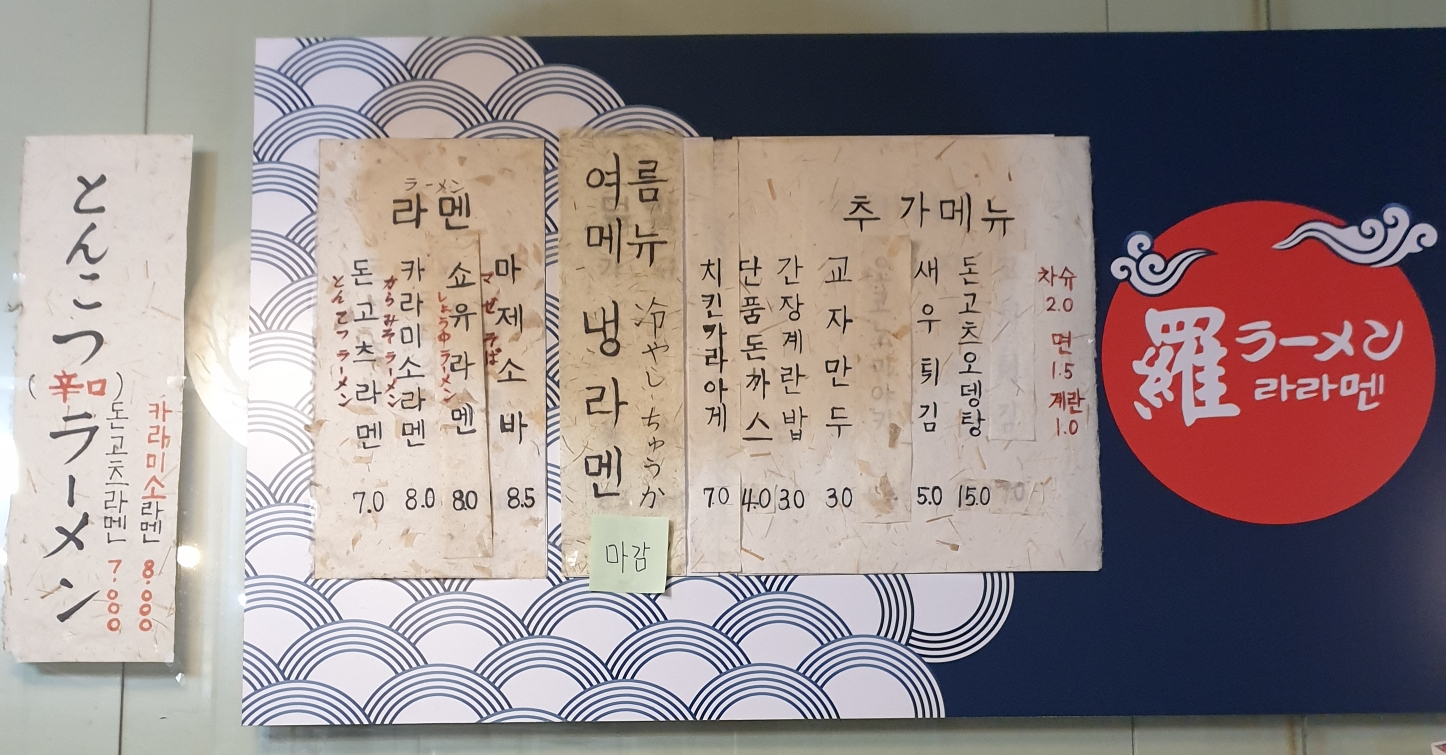 とんこつ(辛口)ラーメン
카래미소라멘 8.000
돈고츠라멘 7.000
ラーメン
라멘
돈고츠라멘 7.0
とんこつラーメン
카라미소라멘 8.0
からみそラーメン
쇼유라멘 8.0
しょうゆラーメン
마제소바 8.5
まぜそば
여름
메뉴
냉라멘
冷やしちゅうか
마감
추가메뉴
치킨가라아게 7.0
단품돈까스 4.0
간장계란밥 3.0
교자만두 3.0
새우튀김 5.0
돈고츠오뎅탕 15.0
차슈
2.0
면
1.5
계란
1.0
羅
ラーメン
라라멘